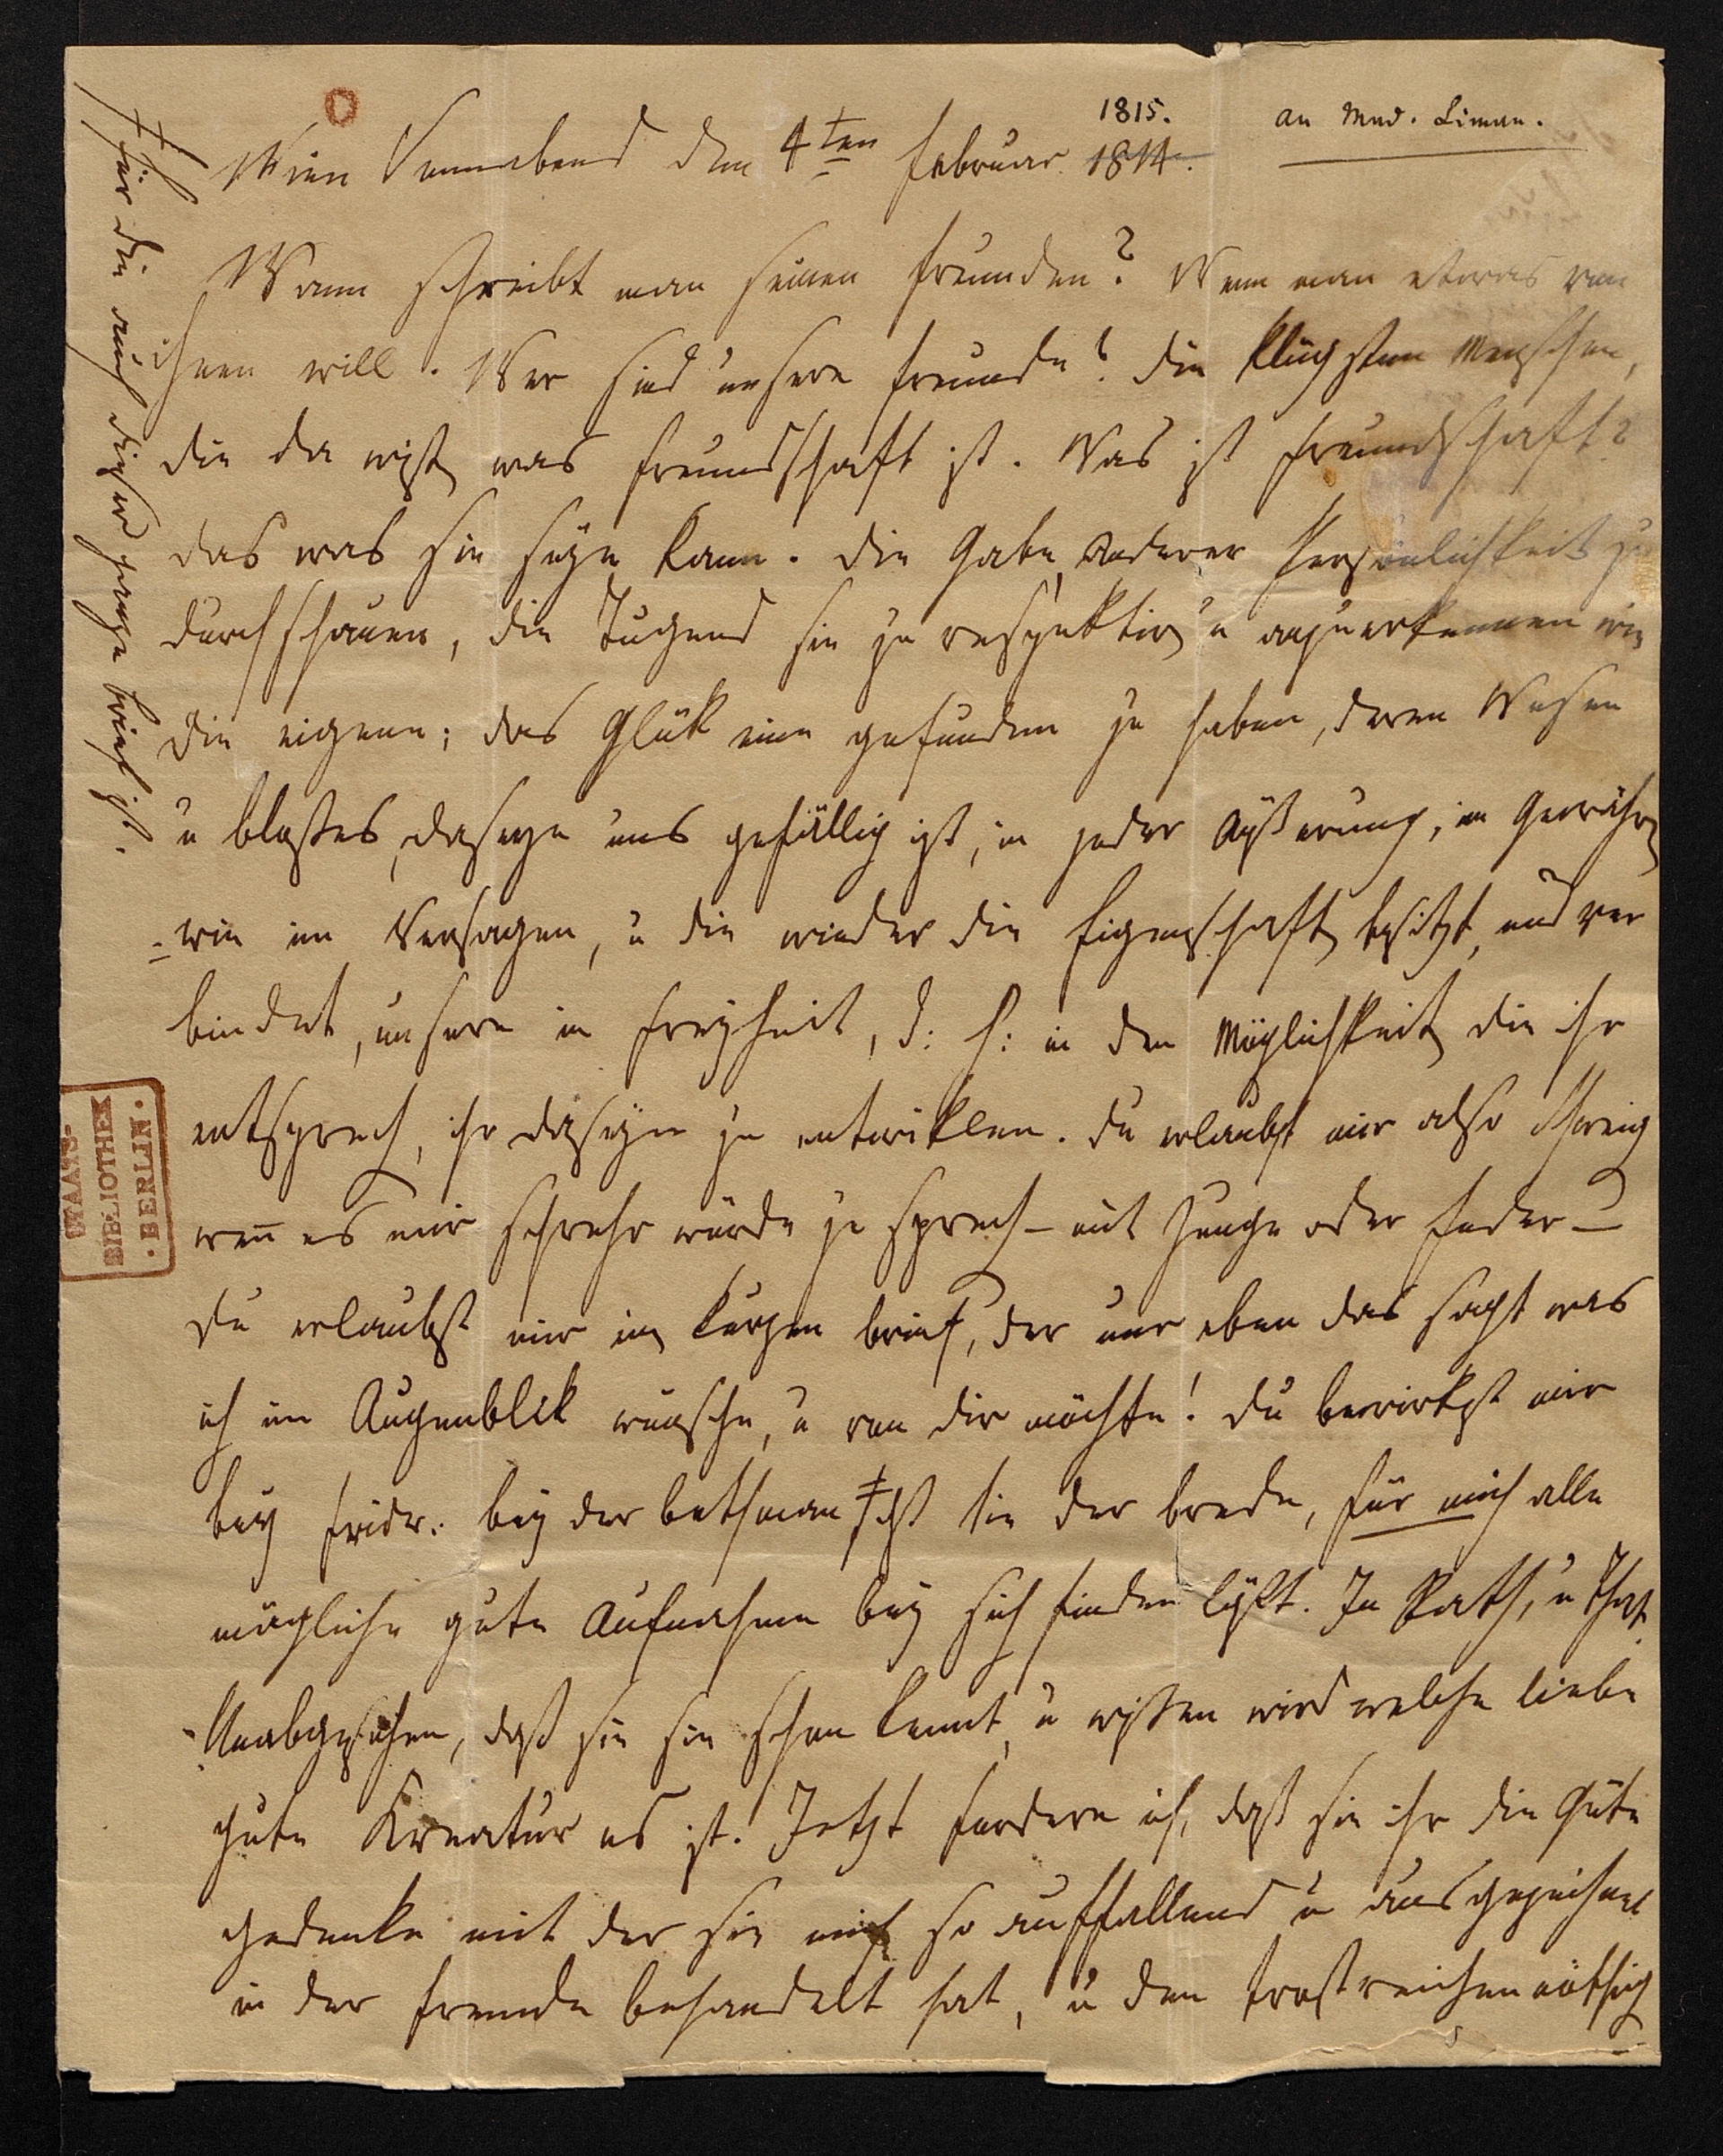 1815.
an Mad. Liman.
Wien Sonnabend den 4ten Februar 1814.
Wann schreibt man seinen Freunden? Wenn man etwas von
ihnen will. Wer sind unsere Freunde? die klügsten Menschen,
die da wißen was Freundschaft ist. Was ist Freundschaft?
das was sie seyn kann. die Gabe anderer Persönlichkeit zu
durchschauen, die Tugend sie zu respektiren u anzuerkennen wie
die eigene; das Glük eine gefunden zu haben, deren Wesen
u bloßes daseyn uns gefällig ist, in jeder Äußerung, im Gewähren
wie im Versagen, u die wieder die Eigenschaften besitzt, und ver
bindet, unsere in Freyheit, d: h: in den Möglichkeiten die ihr
entsprechen, ihr daseyn zu entwiklen. du erlaubst mir also
wenn es mir schwehr würde zu sprechen – mit Zunge oder Feder –
du erlaubst mir einen kurzen brief, der nur eben das sagt was
ich im Augenblik wünsche, u von dir möchte! du bewirkst mir
bey Fridr: bey der bethmann ‡ daß sie der brede, für mich alle
mögliche gute Aufnahme bey sich finden läßt. In Rath, u That
Unabgesehen, daß sie sie schon kennt, u wißen wird welche liebe
gute Kreatur es ist. Jetzt fordere ich, daß sie ihr die Güte
gedenke mit der sie mich so auffallend u ausgezeichnet
in der Fremde behandelt hat, u den trostreichen nöthigen
‡ für die auch dieser ganze brief ist.
STAATS-
BIBLIOTHEK
· BERLIN ·